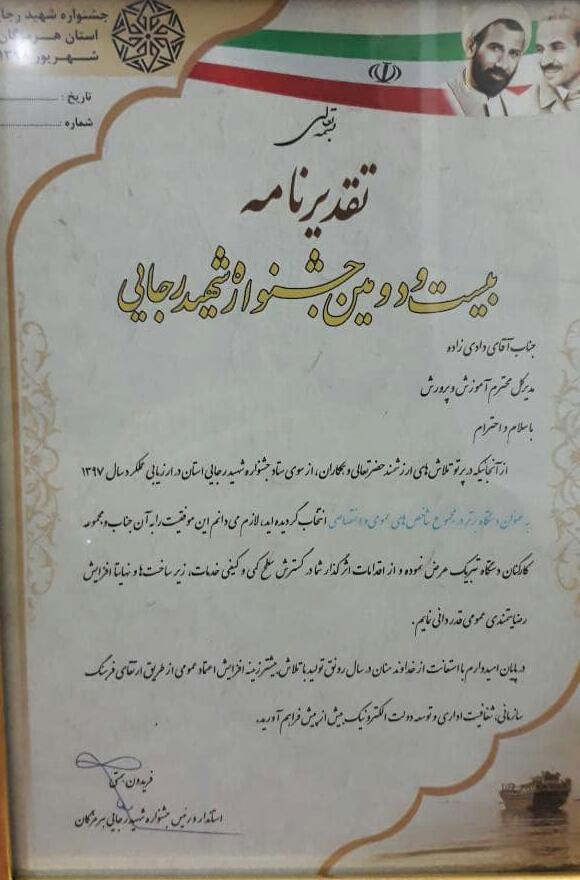 جشنواره شهید رجا
استان هرمزگان
شهریور
تاریخ :
شماره :
بسمه تعالی
تقدیرنامه
بیست و دومین جشنواره شهید رجایی
جناب آقای دادی زاده
مدیرکل محترم آموزش و پرورش
با سلام و احترام
از آنجائیکه در پرتو تلاش های ارزشمند حضرتعالی و همکاران، از سوی ستاد جشنواره شهید رجایی استان در ارزیابی عملکرد سال ۱۳۹۷
به عنوان دستگاه برتر در مجموع شاخص های عمومی و اختصاصی انتخاب گردیده اید، لازم می دانم این موفقیت را به آن جناب و مجموعه
کارکنان دستگاه تبریک عرض نموده و از اقدامات اثرگذار شما در گسترش سطح کمی و کیفی خدمات، زیر ساخت ها و نهایتا افزایش
رضایتمندی عمومی قدردانی نمایم.
در پایان امیدوارم با استعانت از خداوند منان در سال رونق تولید با تلاش بیشتر زمینه افزایش اعتماد عمومی از طریق ارتقای فرهنگ
سازمانی، شفافیت اداری و توسعه دولت الکترونیک بیش از پیش فراهم آورید.
فریدون همتی
استاندار و رئیس جشنواره شهید رجایی هرمزگان